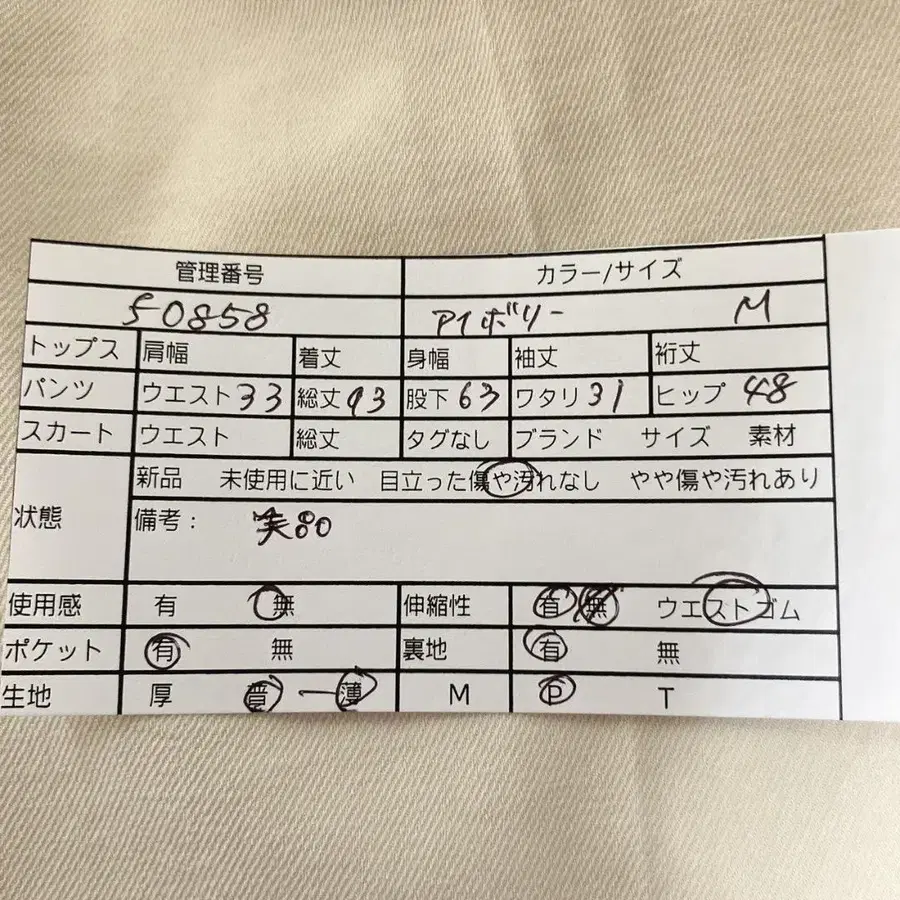 管理番号 カラー/サイズ
50858 アイボリー M
トップス 肩幅 着丈 身幅 袖丈 裄丈
パンツ ウエスト33 総丈93 股下63 ワタリ31 ヒップ 48
スカート ウエスト 総丈 タグなし ブランド サイズ 素材
新品 未使用に近い 目立った傷や汚れなし やや傷や汚れあり
状態
備考： 80
使用感 有 無 伸縮性 有 無 ウエストゴム
ポケット 有 無 裏地 有 無
生地 厚 普 ー薄 M P T